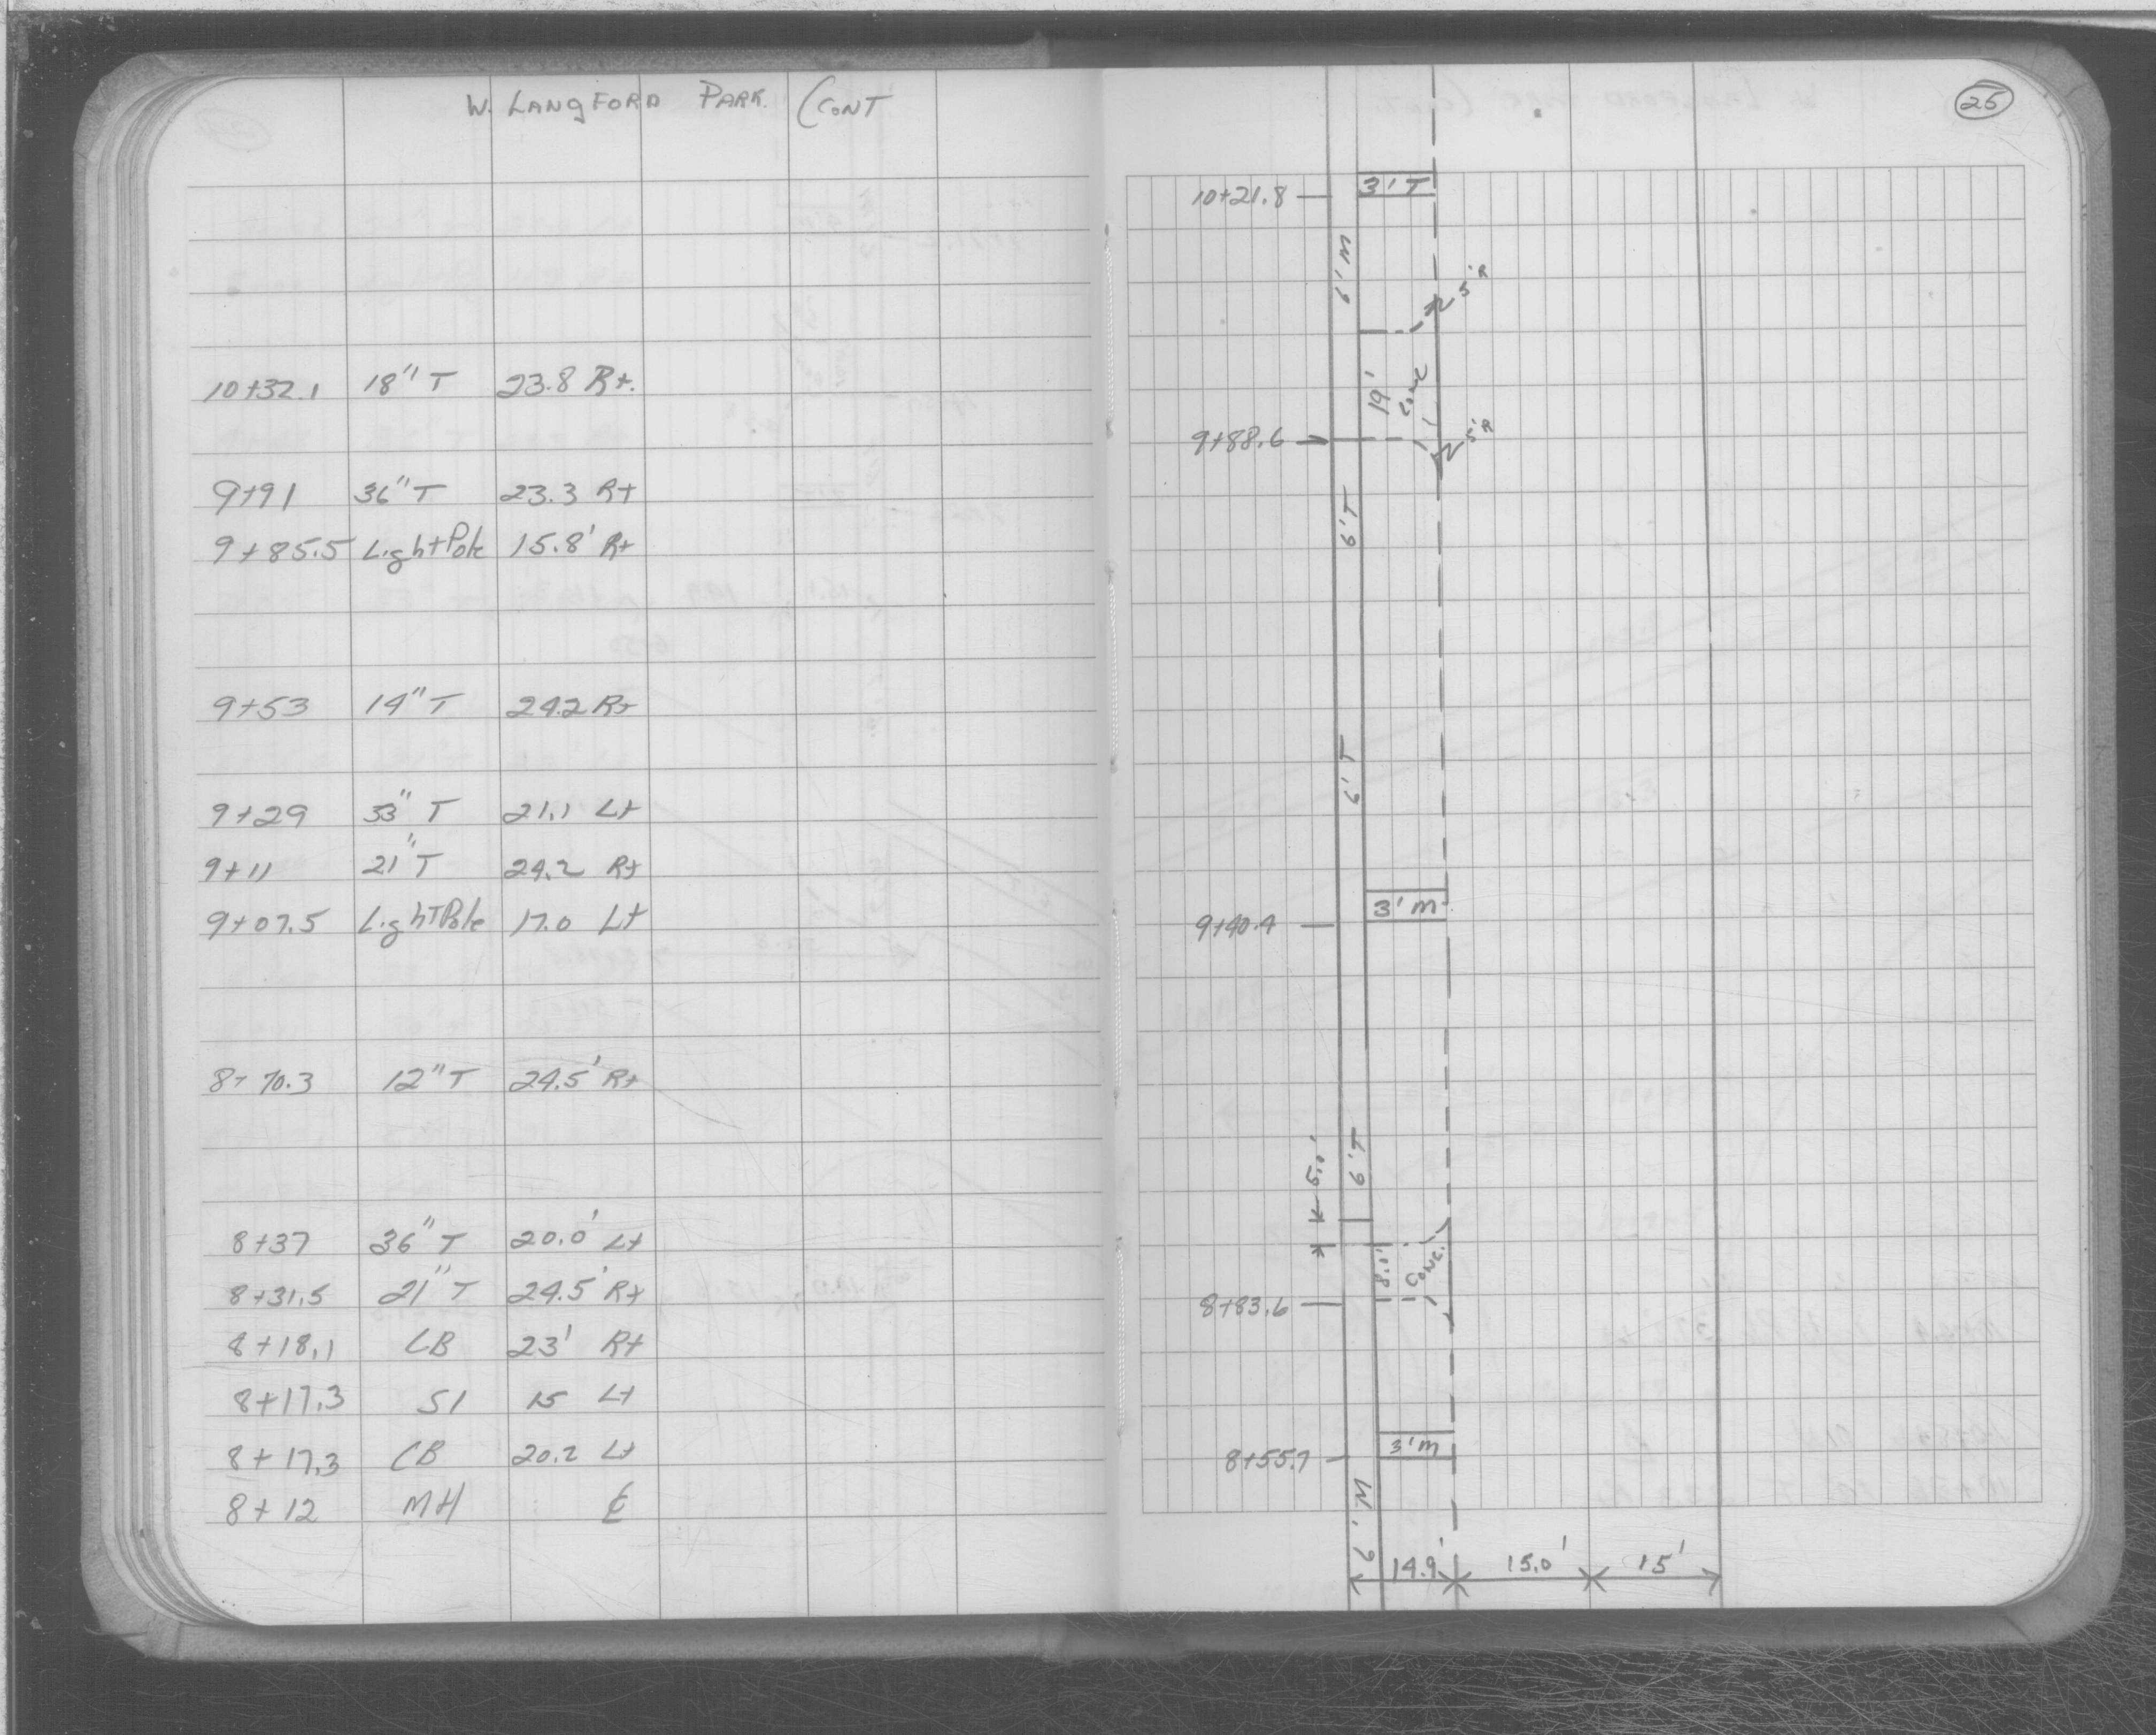 W. LANGFORD PARK. (CONT
10+32.1 18" T 23.8 Rt.
9+91 36" T 23.3 Rt
9+85.5 Light Pole 15.8' Rt
9+53 14" T 24.2 Rt
9+29 33" T 21.1 Lt
9+11 21" T 24.2 Rt
9+07.5 Light Pole 17.0 Lt
8+70.3 12" T 24.5' Rt
8+37 36" T 20.0' Lt
8+31.5 21" T 24.5' Rt
8+18.1 CB 23' Rt
8+17.3 SI 15 Lt
8+17.3 CB 20.2 Lt
8+12 MH ℄
25
10+21.8 3' T
6' M
5'R
19' Conc
9+88.6 5'R
6' T
6' T
9+40.4 3' M
5.0' 6' T
8.0' Conc.
8+83.6
8+55.7 3' M
6' M
14.9' 15.0' 15'